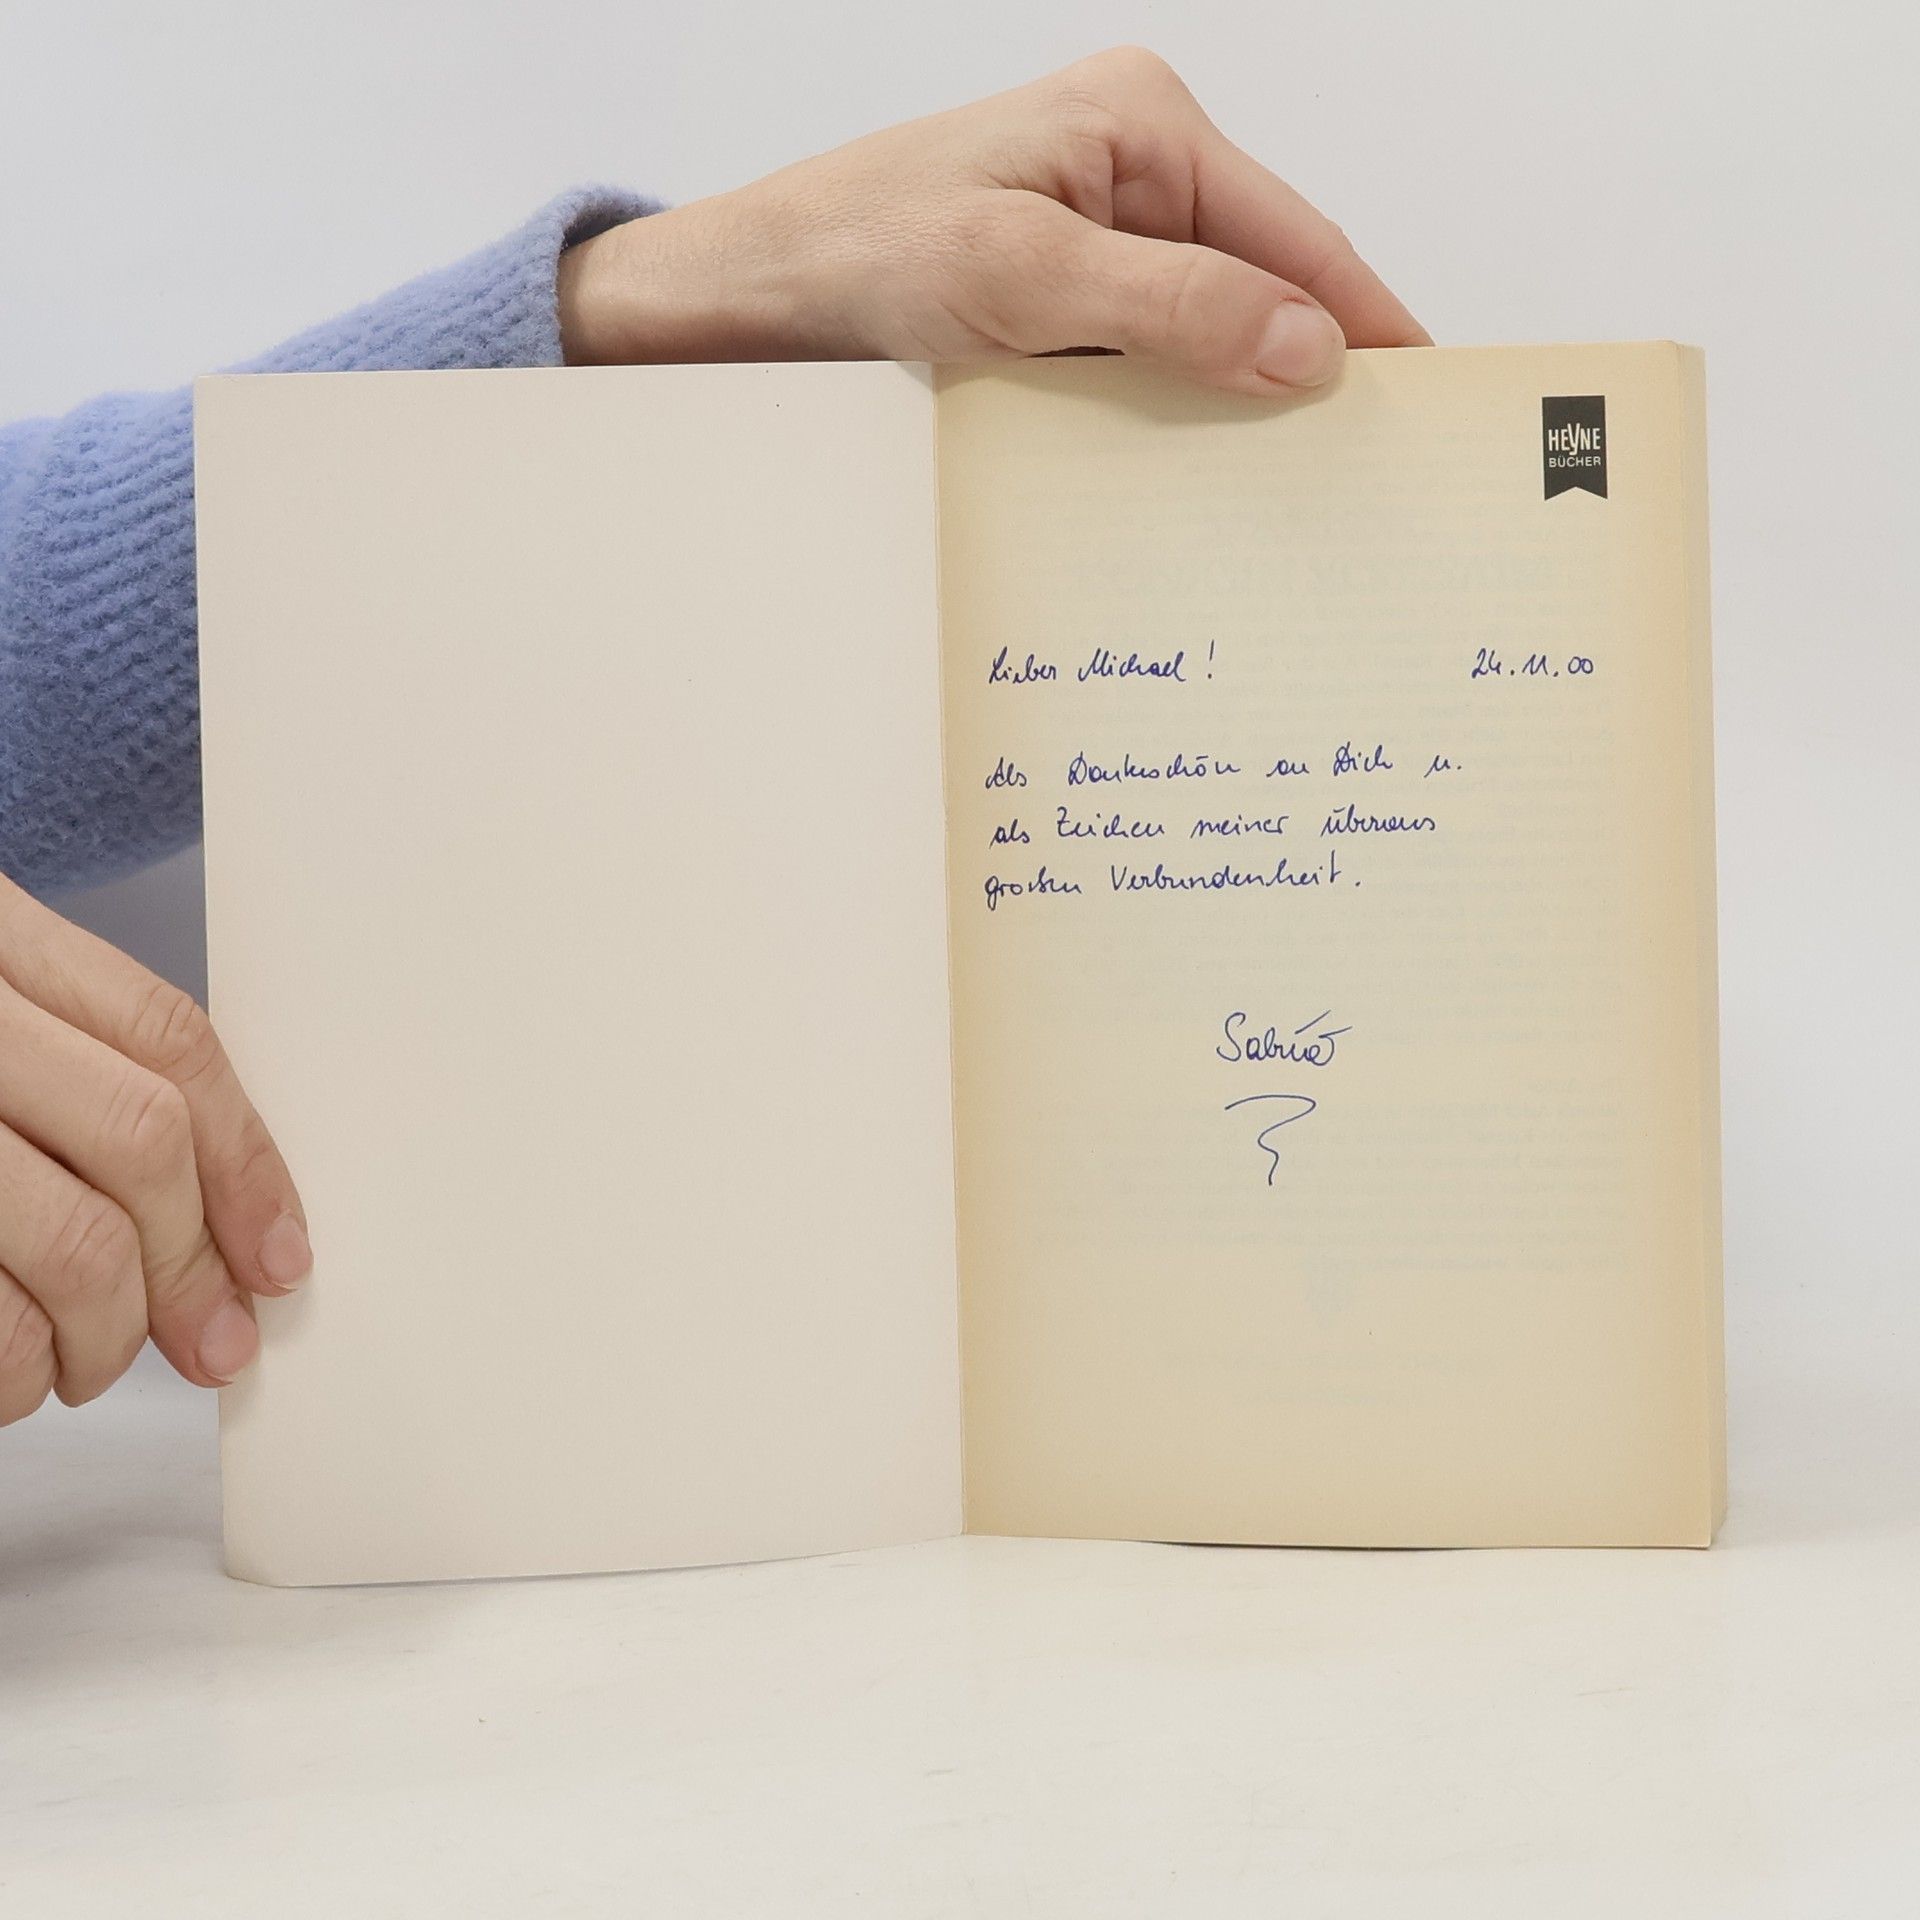 HEYNE
BÜCHER
Lieber Michael! 24.11.00
Als Dankeschön an Dich u.
als Zeichen meiner überaus
großen Verbundenheit.
Sabine